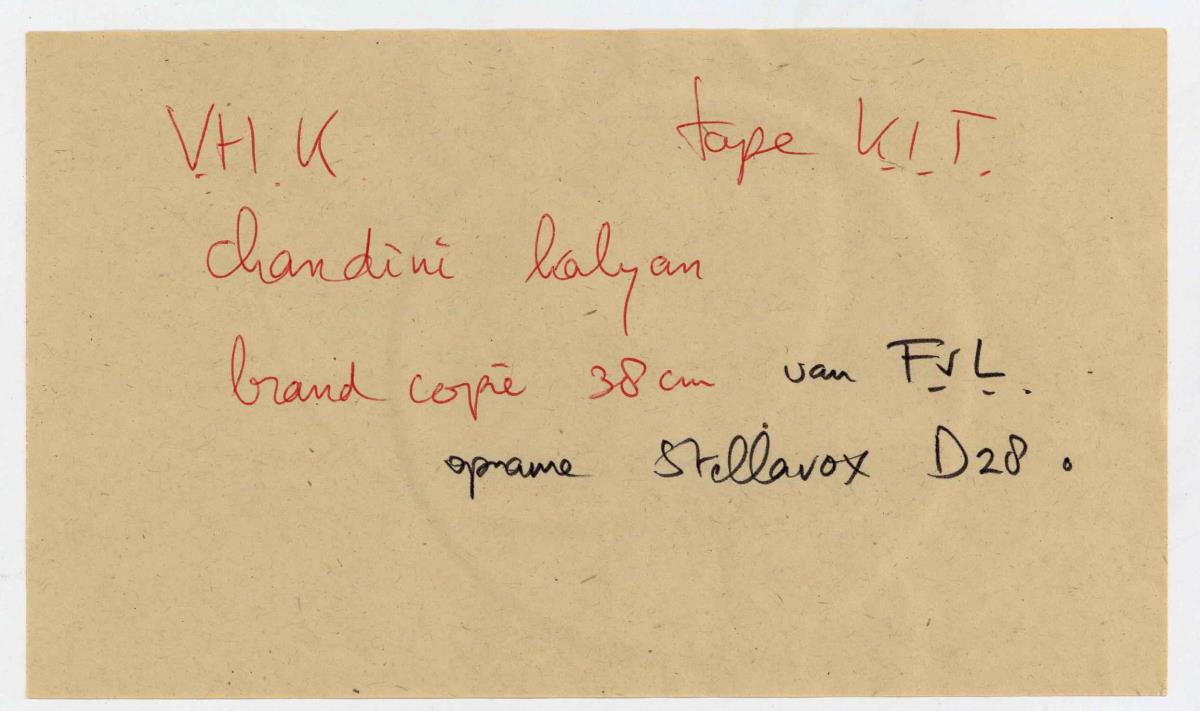 V.H.K tape K.I.T.
chandini kalyan
brand copie 38 cm van F.v.L.
opname Stellavox D28.